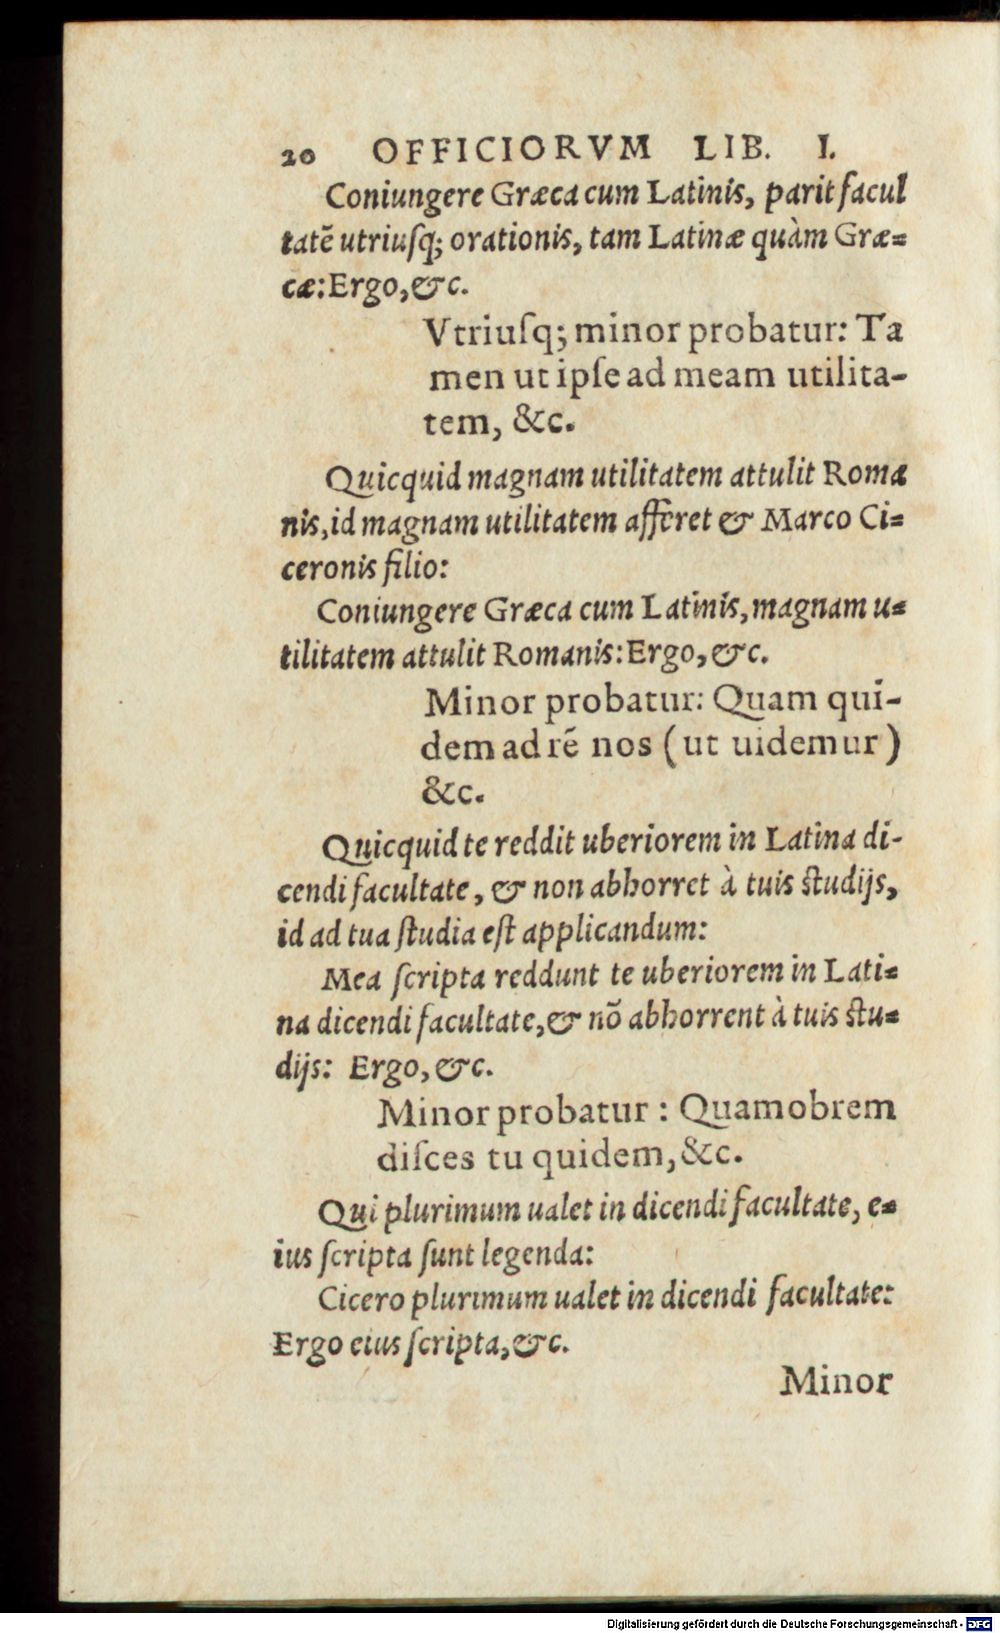 20 OFFICIORVM LIB. I.
Coniungere Græca cum Latinis, parit facul
tatē utriuſq; orationis, tam Latinæ quàm Græ=
cæ: Ergo, &c.
Vtriuſq; minor probatur: Ta
men ut ipſe ad meam utilita-
tem, &c.
Quicquid magnam utilitatem attulit Roma
nis, id magnam utilitatem afferet & Marco Ci=
ceronis filio:
Coniungere Græca cum Latinis, magnam u=
tilitatem attulit Romanis: Ergo, &c.
Minor probatur: Quam qui-
dem ad rē nos (ut uidemur)
&c.
Quicquid te reddit uberiorem in Latina di-
cendi facultate, & non abhorret à tuis ſtudijs,
id ad tua ſtudia eſt applicandum:
Mea ſcripta reddunt te uberiorem in Lati=
na dicendi facultate, & nō abhorrent à tuis ſtu=
dijs: Ergo, &c.
Minor probatur: Quamobrem
diſces tu quidem, &c.
Qui plurimum ualet in dicendi facultate, e=
ius ſcripta ſunt legenda:
Cicero plurimum ualet in dicendi facultate:
Ergo eius ſcripta, &c.
Minor
Digitalisierung gefördert durch die Deutsche Forschungsgemeinschaft - DFG